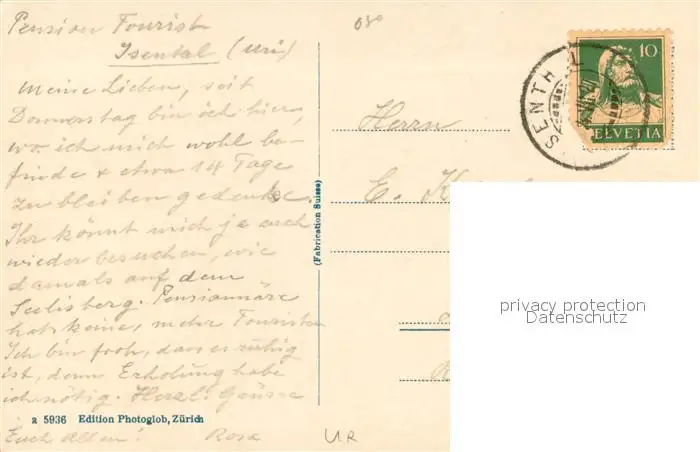 Pension Tourist
Isental (Uri)
Meine Lieben, seit
Donnerstag bin ich hier,
wo ich mich wohl be-
finde & etwa 14 Tage
zu bleiben gedenke.
Ihr könnt mich ja auch
wieder besuchen, wie
damals auf dem
Seelisberg. Pensionnäre
hat's keine, mehr Touristen
Ich bin froh, dass es ruhig
ist, denn Erholung habe
ich nötig. Herzl. Grüsse
a 5936 Edition Photoglob, Zürich
Euch allen! Rosa
UR
(Fabrication Suisse)
080
Herrn
E. K
10
HELVETIA
SENTH
privacy protection
Datenschutz